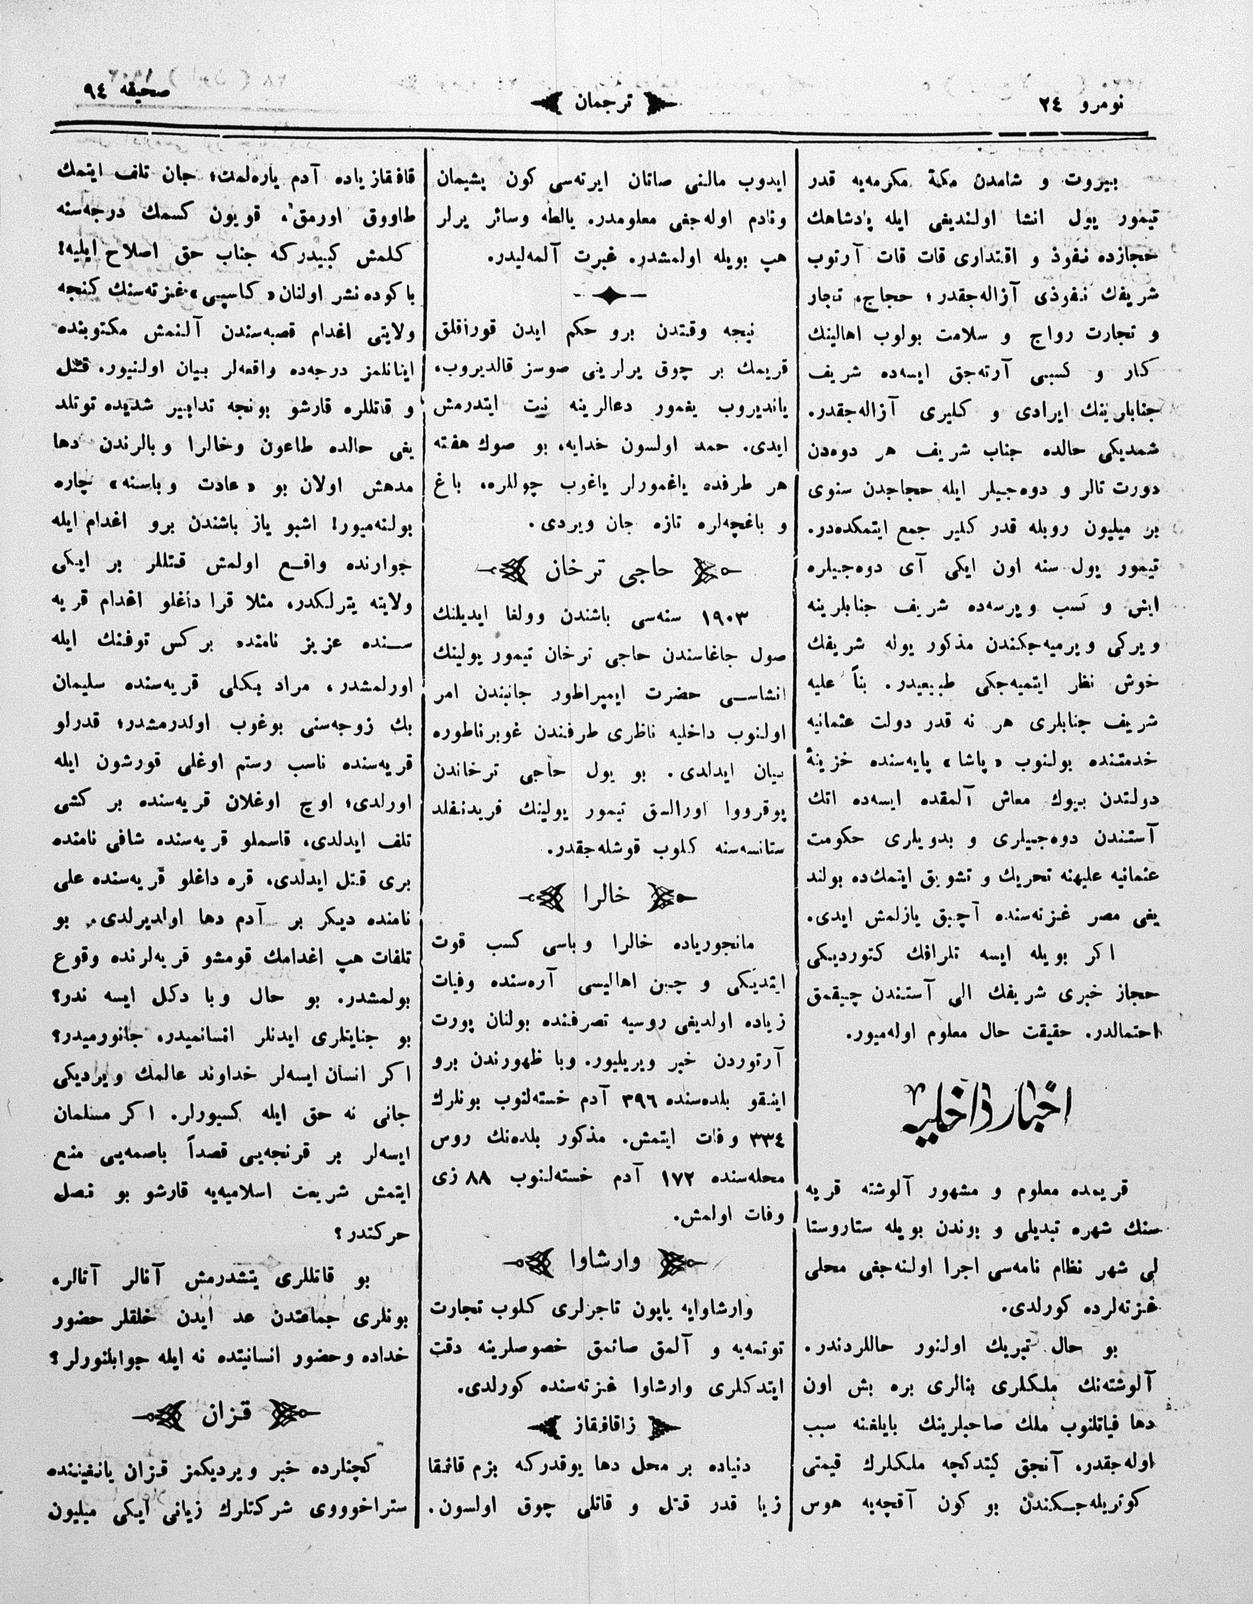 نومرو ٢٤
ترجمان
صحیفه ٩٤
بیروت و شامدن مکهٔ مکرمه‌یه قدر
تیمور یول انشا اولندیغی ایله پادشاهك
حجازده نفوذ و اقتداری قات قات آرتوب
شریفك نفوذی آزاله‌جقدر؛ حجاج، تجار
و تجارت رواج و سلامت بولوب اهالینك
کار و کسبی آرته‌جق ایسه‌ده شریف
جنابلرینك ایرادی و کلیری آزاله‌جقدر.
شمدیکی حالده جناب شریف هر دوه‌دن
دورت تالر و دوه‌جیلر ایله حجاجدن سنوی
بر میلیون روبله قدر کلیر جمع ایتمکده‌در.
تیمور یول سنه اون ایکی آی دوه‌جیلره
ایش و کسب ویرسه‌ده شریف جنابلرینه
ویرکی ویرمیه‌جکندن مذکور یوله شریفك
خوش نظر ایتمیه‌جکی طبیعیدر. بناً علیه
شریف جنابلری هر نه قدر دولت عثمانیه
خدمتنده بولنوب «پاشا» پایه‌سنده خزینهٔ
دولتدن بیوك معاش آلمقده ایسه‌ده اتك
آستندن دوه‌جیلری و بدویلری حکومت
عثمانیه علیهنه تحریك و تشویق ایتمك‌ده بولند
یغی مصر غزته‌سنده آچیق یازلمش ایدی.
اکر بویله ایسه تلرافك کتوردیکی
حجاز خبری شریفك الی آستندن چیقمق
احتمالدر. حقیقت حال معلوم اوله‌میور.
اخبار داخلیه
قریمده معلوم و مشهور آلوشته قریه
سنك شهره تبدیلی و بوندن بویله ستاروستا
لی شهر نظام نامه‌سی اجرا اولنه‌جغی محلی
غزته‌لرده کورلدی.
بو حال تبریك اولنور حاللردندر.
آلوشته‌نك ملکلری بنالری بره بش اون
دها فیاتلنوب ملك صاحبلرینك بایلغنه سبب
اوله‌جقدر. آنجق کیتدکچه ملکلرك قیمتی
کوتریله‌جکندن بو کون آقچه‌یه هوس
ایدوب مالنی صاتان ایرته‌سی کون پشیمان
ونادم اوله‌جغی معلومدر. یالطه وسائر یرلر
هپ بویله اولمشدر. غبرت آلمه‌لیدر.
نیجه وقتدن برو حکم ایدن قوراقلق
قریمك بر چوق یرلرینی صوسز قالدیروب،
یاندیروب یغمور دعالرینه نیت ایتدرمش
ایدی. حمد اولسون خدایه، بو صوك هفته
هر طرفده یاغمورلر یاغوب چوللره، باغ
و باغچه‌لره تازه جان ویردی.
حاجی ترخان
١٩٠٣ سنه‌سی باشندن وولغا ایدیلنك
صول جاغاسندن حاجی ترخان تیمور یولینك
انشاسی حضرت ایمپراطور جانبندن امر
اولنوب داخلیه ناظری طرفندن غوبرناطوره
بیان ایدلدی. بو یول حاجی ترخاندن
یوقرووا اورالسق تیمور یولینك فریدنفلد
ستانسه‌سنه کلوب قوشله‌جقدر.
خالرا
مانجوریاده خالرا وباسی کسب قوت
ایتدیکی و چین اهالیسی آره‌سنده وفیات
زیاده اولدیغی روسیه تصرفنده بولنان پورت
آرتوردن خبر ویریلیور. وبا ظهورندن برو
اینقو بلده‌سنده ٣٩٦ آدم خسته‌لنوب بونلرك
٣٣٤ وفات ایتمش. مذکور بلده‌نك روس
محله‌سنده ١٧٢ آدم خسته‌لنوب ٨٨ زی
وفات اولمش.
وارشاوا
وارشاوایه یاپون تاجرلری کلوب تجارت
توتمه‌یه و آلمق صاتمق خصوصلرینه دقت
ایتدکلری وارشاوا غزته‌سنده کورلدی.
زاقافقاز
دنیاده بر محل دها یوقدرکه بزم قافقا
زیا قدر قتل و قاتلی چوق اولسون.
قافقازیاده آدم یاره‌لمك؛ جان تلف ایتمك
طاووق اورمق، قویون کسمك درجه‌سنه
کلمش کبیدرکه جناب حق اصلاح ایلیه!
باکوده نشر اولنان «کاسپی» غزته‌سنك کنجه
ولایتی اغدام قصبه‌سندن آلنمش مکتوبنده
اینانلمز درجه‌ده واقعه‌لر بیان اولنیور. قتل
و قاتللره قارشو بونجه تدابیر شدیده توتلد
یغی حالده طاعون وخالرا وبالرندن دها
مدهش اولان بو «عادت وباسنه» چاره
بولنه‌میور! اشبو یاز باشندن برو اغدام ایله
جوارنده واقع اولمش قتللر بر ایکی
ولایته یترلکدر، مثلا قرا داغلو اغدام قریه
سنده عزیز نامنده برکس توفنك ایله
اورلمشدر، مراد بکلی قریه‌سنده سلیمان
بك زوجه‌سنی بوغوب اولدرمشدر؛ قدرلو
قریه‌سنده ناسب رستم اوغلی قورشون ایله
اورلدی؛ اوچ اوغلان قریه‌سنده بر کشی
تلف ایدلدی، قاسملو قریه‌سنده شافی نامنده
بری قتل ایدلدی، قره داغلو قریه‌سنده علی
نامنده دیکر بر آدم دها اولدیرلدی. بو
تلفات هپ اغدامك قومشو قریه‌لرنده وقوع
بولمشدر. بو حال وبا دکل ایسه ندر؟
بو جنایتلری ایدنلر انسانمیدر، جانورمیدر؟
اکر انسان ایسه‌لر خداوند عالمك ویردیکی
جانی نه حق ایله کسیورلر. اکر مسلمان
ایسه‌لر بر قرنجه‌یی قصداً باصمه‌یی منع
ایتمش شریعت اسلامیه‌یه قارشو بو نصل
حرکتدر؟
بو قاتللری یتشدرمش آنالر آتالر،
بونلری جماعتدن عد ایدن خلقلر حضور
خداده وحضور انسانیتده نه ایله جوابلنورلر؟
قزان
کچنلرده خبر ویردیکمز قزان یانغیننده
ستراخوووی شرکتلرك زیانی ایکی میلیون